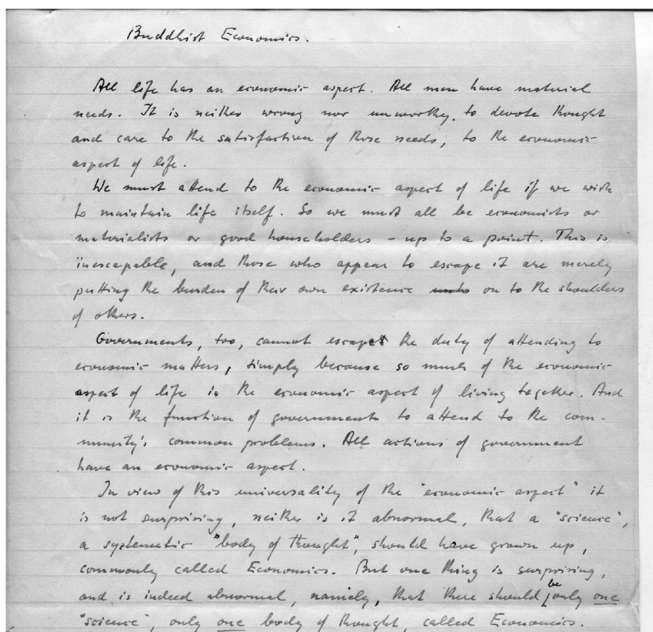 Buddhist Economics.
All life has an economic aspect. All men have material
needs. It is neither wrong nor unworthy, to devote thought
and care to the satisfaction of those needs, to the economic
aspect of life.
We must attend to the economic aspect of life if we wish
to maintain life itself. So we must all be economists or
materialists or good householders - up to a point. This is
inescapable, and those who appear to escape it are merely
putting the burden of their own existence on to the shoulders
of others.
Governments, too, cannot escape the duty of attending to
economic matters, simply because so much of the economic
aspect of life is the economic aspect of living together. And
it is the function of governments to attend to the com-
munity's common problems. All actions of government
have an economic aspect.
In view of this universality of the "economic aspect" it
is not surprising, neither is it abnormal, that a "science",
a systematic "body of thought", should have grown up,
commonly called Economics. But one thing is surprising,
and is indeed abnormal, namely, that there should be only one
"science", only one body of thought, called Economics.